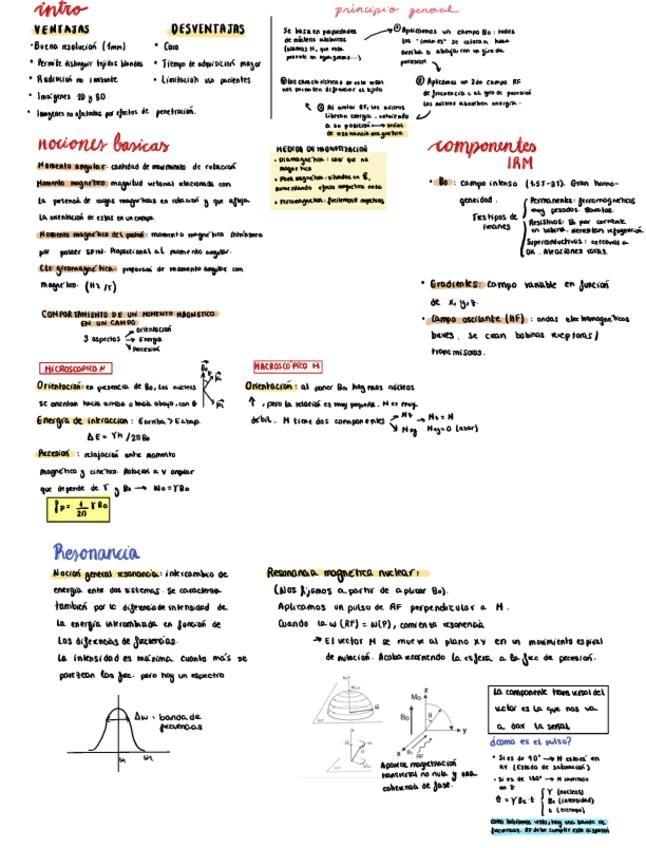 intro
VENTAJAS
• Buena resolución (1mm)
• Permite distinguir tejidos blandos
• Radiación no ionizante
• Imágenes 2D y 3D
• Imagenes no afectadas por efectos de penetración.
DESVENTAJAS
• Caro
• Tiempo de adquisición mayor
• Limitación uso pacientes
principio general
Se basa en propiedades
de núcleos atómicos
① Aplicamos un campo Bo: todos
los "imanes" se colocan hacia
arriba o abajo con un giro de
precesión
② Aplicamos un 2do campo RF
de frecuencia = al giro de precesión
Los núcleos absorben energía.
③ Al anular RF, los núcleos
liberan energía, volviendo
a su posición → señal
de resonancia magnética
nos permiten diferenciar el tejido
nociones basicas
Momento angular: cantidad de movimiento de rotación
Momento magnético: magnitud vectorial relacionada con
la potencia de cargas magneticas en rotación y que afleja
la orientación de estas en un campo.
Momento magnetico del protón: momento magnético intrínseco
por poseer SPIN. Proporcional al momento angular.
Cte giromagnética: proporción de momento angular con
magnético. (Hz/T)
MEDIDA DE MAGNETIZACIÓN
• Diamagnética: casi que no
magnetica
aumentando efecto magnetico neto
componentes
IRM
• Bo: campo intenso (1.5T-3T). Gran homo-
geneidad.
Tres tipos de
imanes
Permanentes: ferromagneticos
muy pesados. Baratos.
Resistivos: Bo por corriente
en bobina. Necesitan refrigeración.
Superconductivos: cercanos a
0K. Aleaciones caras.
• Gradientes: campo variable en función
de x, y, z.
• Campo oscilante (RF): ondas electromagnéticas
breves. Se crean bobinas receptoras/
transmisoras.
COMPORTAMIENTO DE UN MOMENTO MAGNETICO
EN UN CAMPO
3 aspectos
Orientación
Energía
Precesión
MICROSCOPICO μ
Orientación: en presencia de Bo, los núcleos
se orientan hacia arriba o hacia abajo, con θ
Energía de interaccion: Earriba > Eabajo
ΔE = γh/2π Bo
Precesión: relajación entre momento
magnético y cinético. Rotación a v angular
que depende de γ y Bo → Wo = γBo
fp = 1/2π γ Bo
MACROSCOPICO M
Orientación: al poner Bo, hay mas núcleos
↑, pero la relación es muy pequeña. M es muy
débil. M tiene dos componentes
Mz → Mz = M
Mxy Mxy = 0 (azar)
Resonancia
Noción general resonancia: intercambio de
energía ente dos sistemas. Se caracteriza
también por la diferencia de intensidad de
la energía intercambiada en función de
las diferencias de frecuencias.
La intensidad es máxima cuanto más se
parezcan las frec. pero hay un espectro
Δω: banda de
frecuencias
Resonancia magnética nuclear:
(Nos fijamos a partir de aplicar Bo).
Aplicamos un pulso de RF perpendicular a M.
Cuando la ω (RF) = ω(P), comienza resonancia
→ El vector M se mueve al plano xy en un movimiento espiral
de nutación. Acaba recorriendo la esfera a la frec de precesión.
Mo
Bo
z
y
x
θ
RF
Aparece magnetización
transversal no nula y una
coherencia de fase.
La componente transversal del
vector es la que nos va
a dar la señal
¿cómo es el pulso?
• Si es de 90° → M estará en
xy (Estado de saturación)
• Si es de 180° → M inverso
en z
θ = γ B1 · t
γ (núcleos)
B1 (intensidad)
t (tiempo)